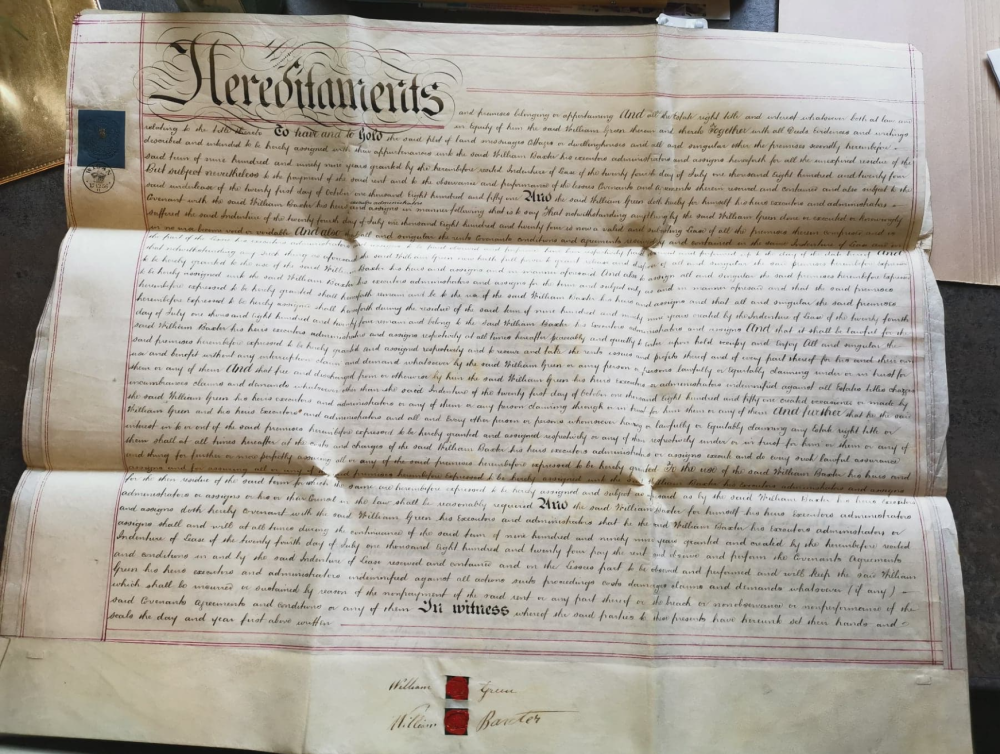 Hereditaments
and premises belonging or appertaining And all the Estate right title and interest whatsoever both at law and
in Equity of him the said William Green therein and thereto Together with all Deeds Evidences and writings
relating to the title thereto To have and to Hold the said plot of land messuages or dwellinghouses and all and singular other the premises hereinbefore
described and intended to be hereby assigned with their appurtenances unto the said William Baxter his executors administrators and assigns henceforth for all the unexpired residue of the
said term of nine hundred and ninety nine years granted by the hereinbefore recited Indenture of Lease of the twenty fourth day of July one thousand eight hundred and twenty four
But subject nevertheless to the payment of the said rent and to the observance and performance of the Lessees Covenants and Agreements therein reserved and contained and also subject to the
said indenture of the twenty first day of October one thousand eight hundred and fifty one And the said William Green doth hereby for himself his heirs executors and administrators
Covenant with the said William Baxter his heirs executors administrators and assigns in manner following that is to say That notwithstanding anything by the said William Green done or executed or knowingly
suffered the said Indenture of the twenty fourth day of July one thousand eight hundred and twenty four is now a valid and subsisting Lease of all the premises therein comprised
void or voidable And also all and singular the rents Covenants conditions and agreements
the part of the Lessee his executors administrators
notwithstanding any such thing as aforesaid the said William Green now hath full power to grant
to be hereby granted to the use of the said William Baxter his heirs and assigns in manner aforesaid And also to assign all and singular the said premises hereinbefore expressed
to be hereby assigned unto the said William Baxter his executors administrators and assigns for the term and subject in manner aforesaid and that the said premises
hereinbefore expressed to be hereby granted shall henceforth remain and be to the use of the said William Baxter his heirs and assigns and that all and singular the said premises
hereinbefore expressed to be hereby assigned shall henceforth during the residue of the said term of nine hundred and ninety nine years granted by the Indenture of Lease of the twenty fourth
day of July one thousand eight hundred and twenty four remain and belong to the said William Baxter his Executors administrators and assigns And that it shall be lawful for the
said William Baxter his heirs executors administrators and assigns respectively at all times hereafter peaceably and quietly to enter upon hold occupy and enjoy All and singular the
said premises hereinbefore expressed to be hereby granted and assigned respectively and to receive and take the rents issues and profits thereof and of every part thereof for his and their own
use and benefit without any interruption claim and demand whatsoever by the said William Green or any person or persons lawfully or equitably claiming under or in trust for
them or any of them And that free and discharged from or otherwise by him the said William Green his heirs executors or administrators indemnified against all Estates titles charges
incumbrances claims and demands whatsoever other than the said Indenture of the twenty first day of October one thousand eight hundred and fifty one created occasioned or made by
the said William Green his heirs executors and administrators or any of them or any person claiming through or in trust for him them or any of them And further that he the said
William Green and his heirs Executors and administrators and all and every other person or persons whomsoever having or lawfully or equitably claiming any Estate right title or
interest in to or out of the said premises hereinbefore expressed to be hereby granted and assigned respectively or any of them respectively under or in trust for him or them or any of
them shall at all times hereafter at the costs and charges of the said William Baxter his heirs executors administrators or assigns execute and do every such lawful assurance
and thing for further or more perfectly assuring all or any of the said premises hereinbefore expressed to be hereby granted To the use of the said William Baxter his heirs and
assigns and for assuring all or any
for the then residue of the said term for which the same are hereinbefore expressed to be hereby assigned and subject as aforesaid as by the said William Baxter his heirs executors
administrators or assigns or his or their Counsel in the law shall be reasonably required And the said William Baxter for himself his heirs Executors administrators
and assigns doth hereby Covenant with the said William Green his Executors and administrators that he the said William Baxter his Executors administrators or
assigns shall and will at all times during the continuance of the said term of nine hundred and ninety nine years granted and created by the hereinbefore recited
Indenture of Lease of the twenty fourth day of July one thousand eight hundred and twenty four pay the rent and observe and perform the Covenants Agreements
and conditions in and by the said Indenture of Lease reserved and contained and on the Lessees part to be observed and performed and will keep the said William
Green his heirs executors and administrators indemnified against all actions suits proceedings costs damages claims and demands whatsoever (if any)
which shall be incurred or sustained by reason of the nonpayment of the said rent or any part thereof or the breach or nonobservance or nonperformance of the
said Covenants Agreements and conditions or any of them In witness whereof the said parties to these presents have hereunto set their hands and
seals the day and year first above written
William Green
William Baxter